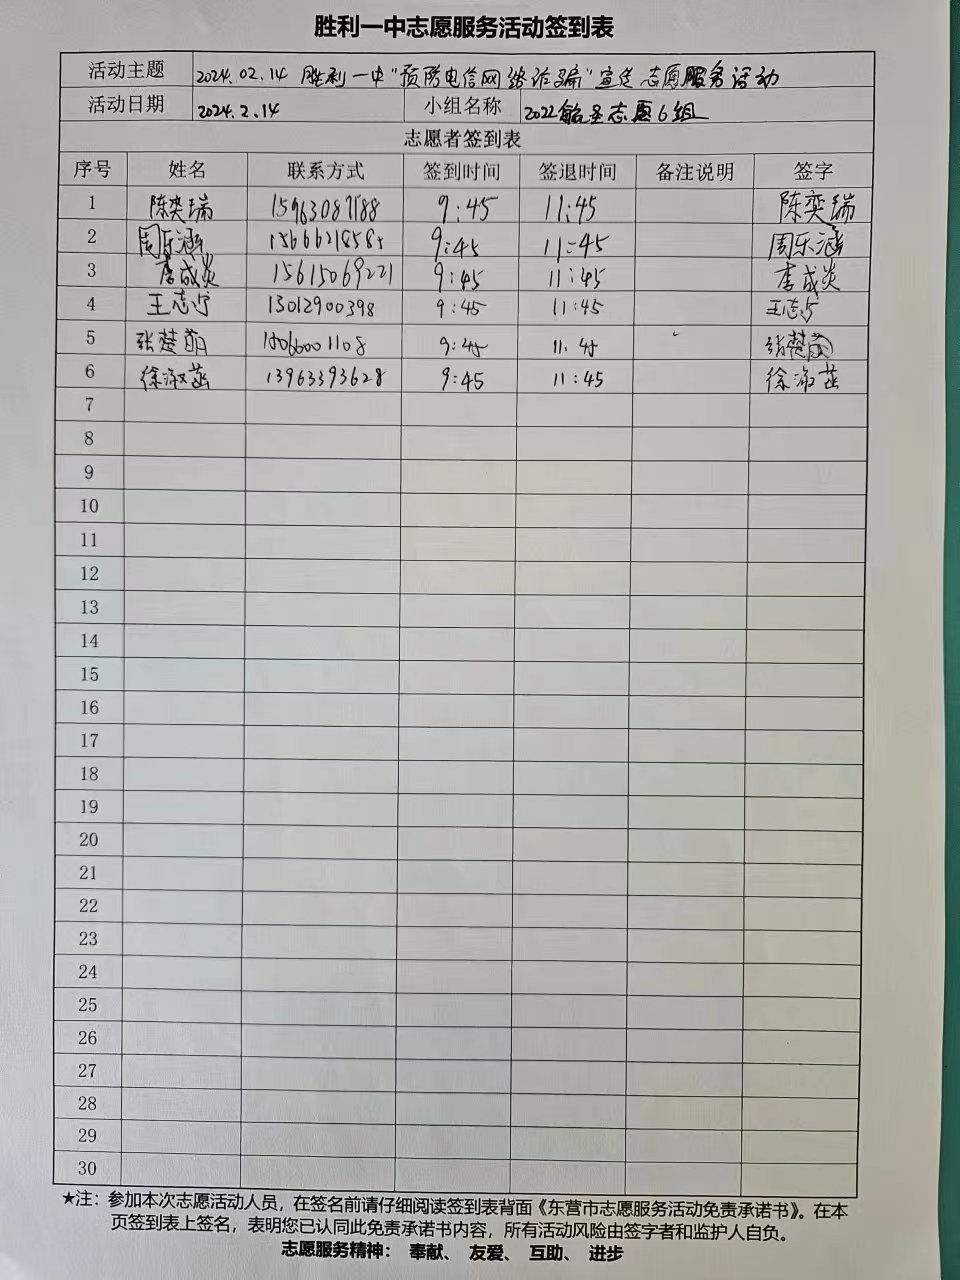 胜利一中志愿服务活动签到表
活动主题 2024.02.14 胜利一中"预防电信网络诈骗"宣传志愿服务活动
活动日期 2024.2.14 小组名称 2022级圣志愿6组
志愿者签到表
序号 姓名 联系方式 签到时间 签退时间 备注说明 签字
1 陈奕瑞 9:45 11:45 陈奕瑞
2 周乐涵 9:45 11:45 周乐涵
3 李成炎 15615069221 9:45 11:45 李成炎
4 王志宁 13012900398 9:45 11:45 王志宁
5 张楚萌 9:45 11:45 张楚萌
6 徐淑菡 13963393628 9:45 11:45 徐淑菡
7
8
9
10
11
12
13
14
15
16
17
18
19
20
21
22
23
24
25
26
27
28
29
30
★注：参加本次志愿活动人员，在签名前请仔细阅读签到表背面《东营市志愿服务活动免责承诺书》。在本
页签到表上签名，表明您已认同此免责承诺书内容，所有活动风险由签字者和监护人自负。
志愿服务精神： 奉献、 友爱、 互助、 进步